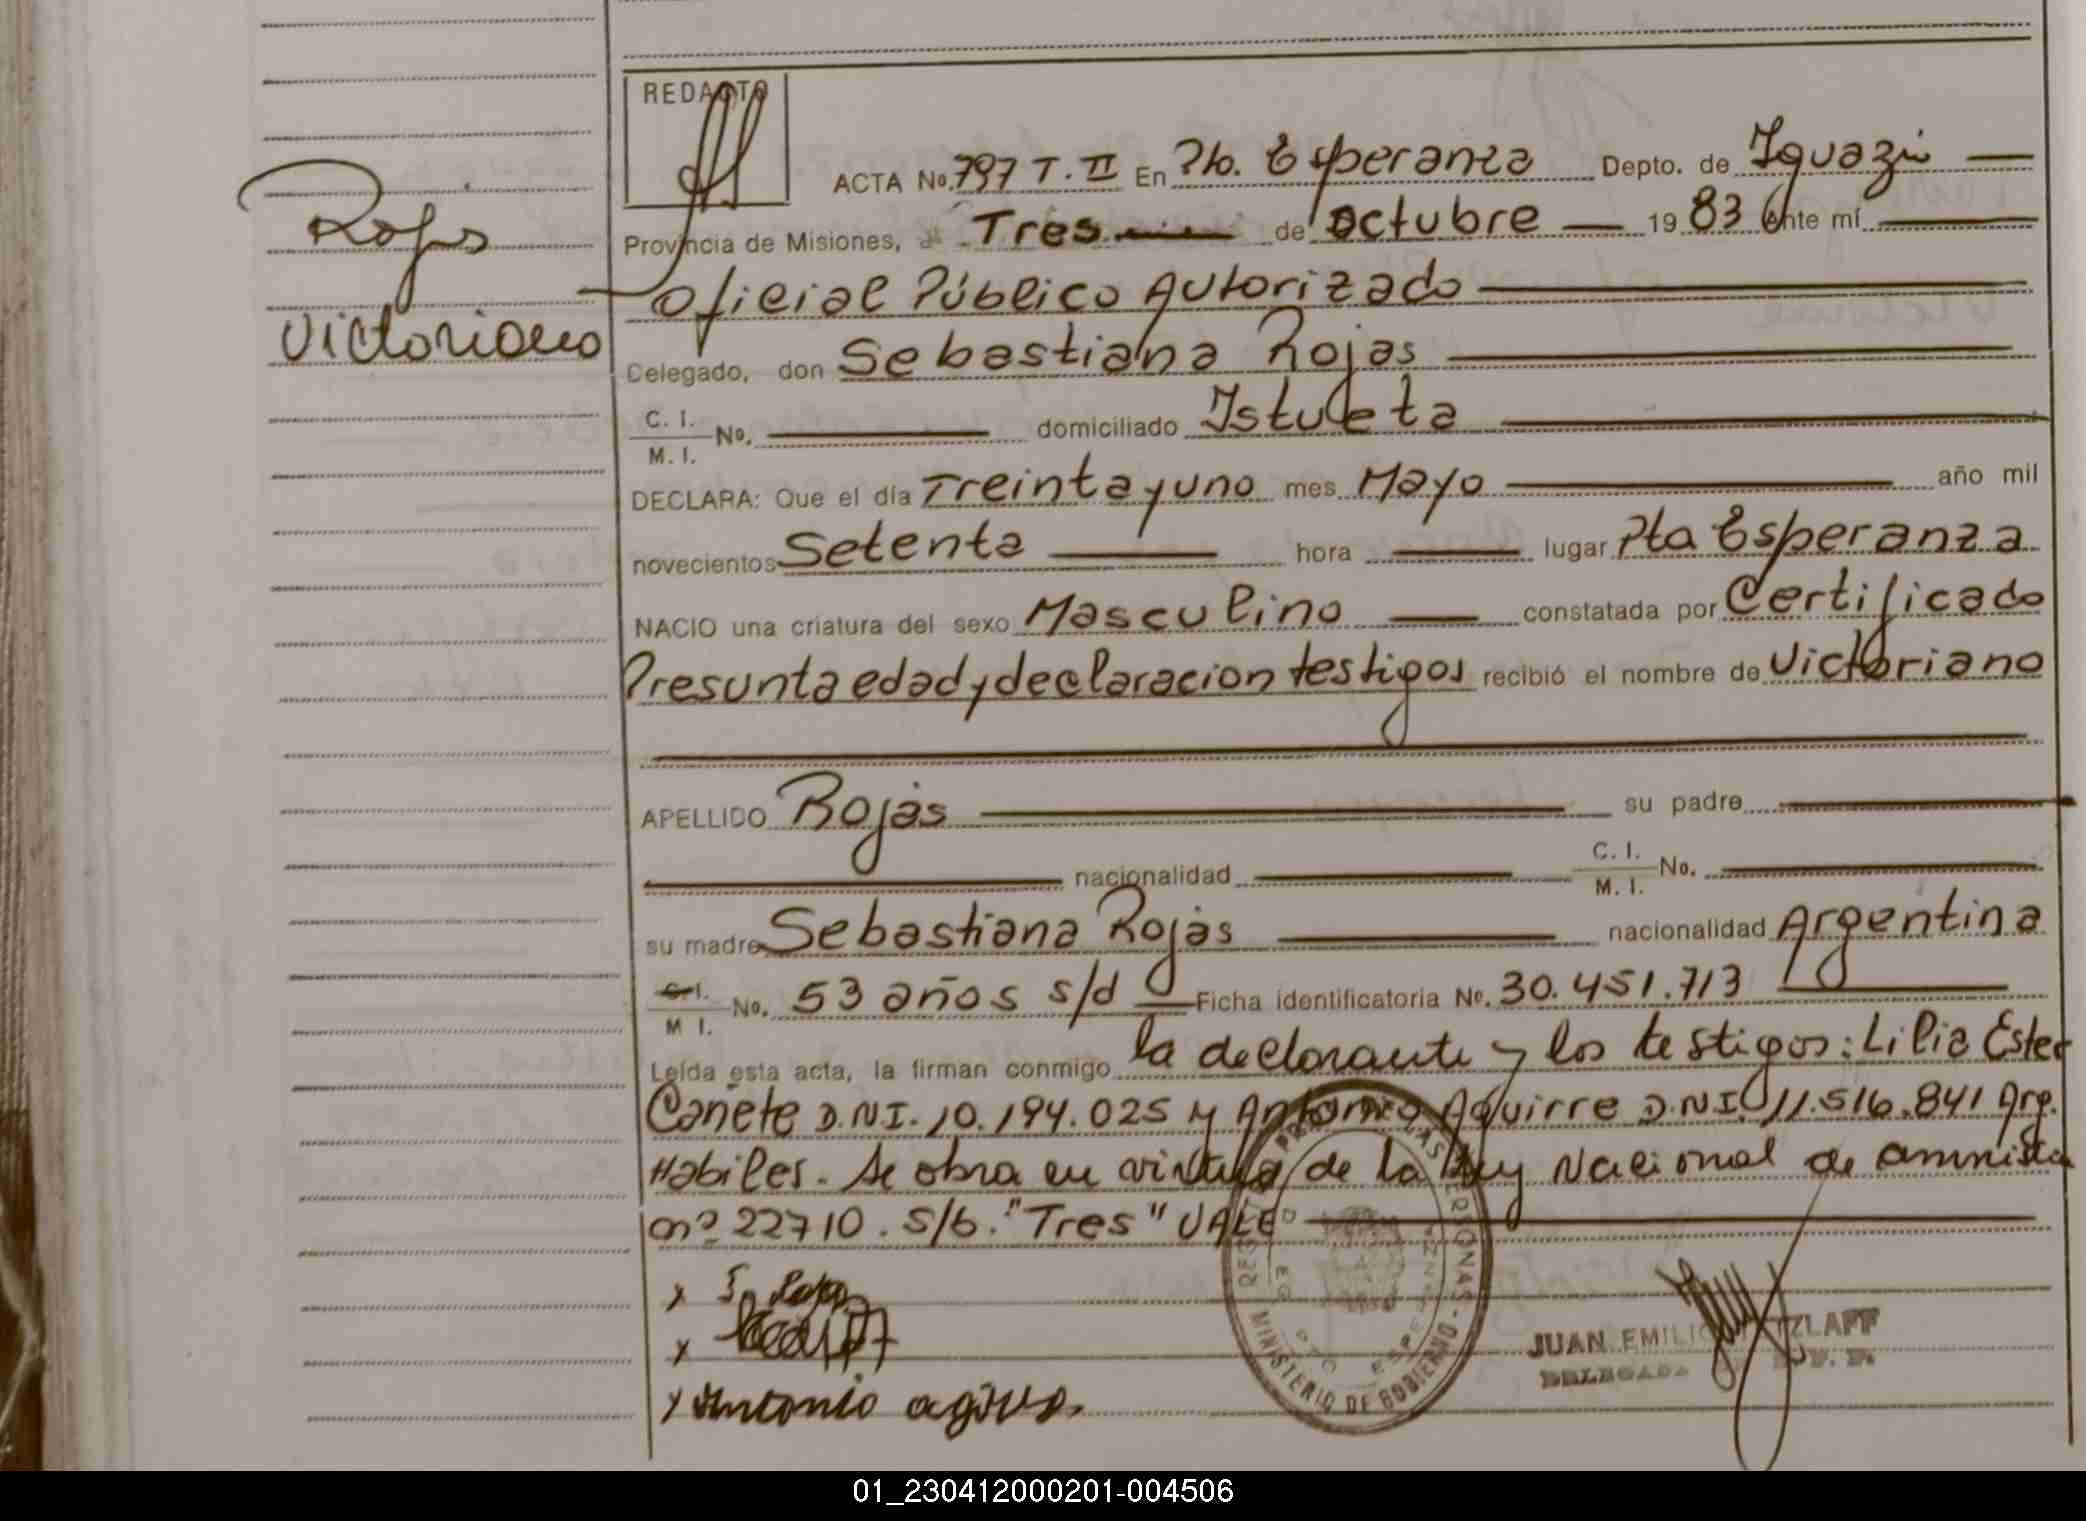 REDACTO
ACTA No. 797 T. II En Pto. Esperanza Depto. de Iguazú
Rojas
Provincia de Misiones, a Tres de Octubre 1983 Ante mí
Oficial Público Autorizado
Victoriano
Delegado, don Sebastiana Rojas
C. I. M. I. No. domiciliado Istueta
DECLARA: Que el día Treinta y uno mes Mayo año mil
novecientos Setenta hora lugar Pto Esperanza
NACIO una criatura del sexo Masculino constatada por Certificado
Presunta edad y declaracion testigos recibió el nombre de Victoriano
APELLIDO Rojas su padre
nacionalidad C. I. M. I. No.
su madre Sebastiana Rojas nacionalidad Argentina
C. I. M I. No. 53 años s/d Ficha identificatoria No. 30.451.713
Leída esta acta, la firman conmigo la declarante y los testigos: Lilia Ester
Cañete D.N.I. 10.194.025 y Antonio Aguirre D.N.I. 11.516.841 Arg.
Habiles. Se obra en virtud de la Ley Nacional de amnistia
nº 22710. S/b. "Tres" VALE
x S. Rojas
x
x Antonio
REGISTRO PROVINCIAL DE LAS PERSONAS - MINISTERIO DE GOBIERNO
JUAN EMILIO
DELEGADO
01_230412000201-004506